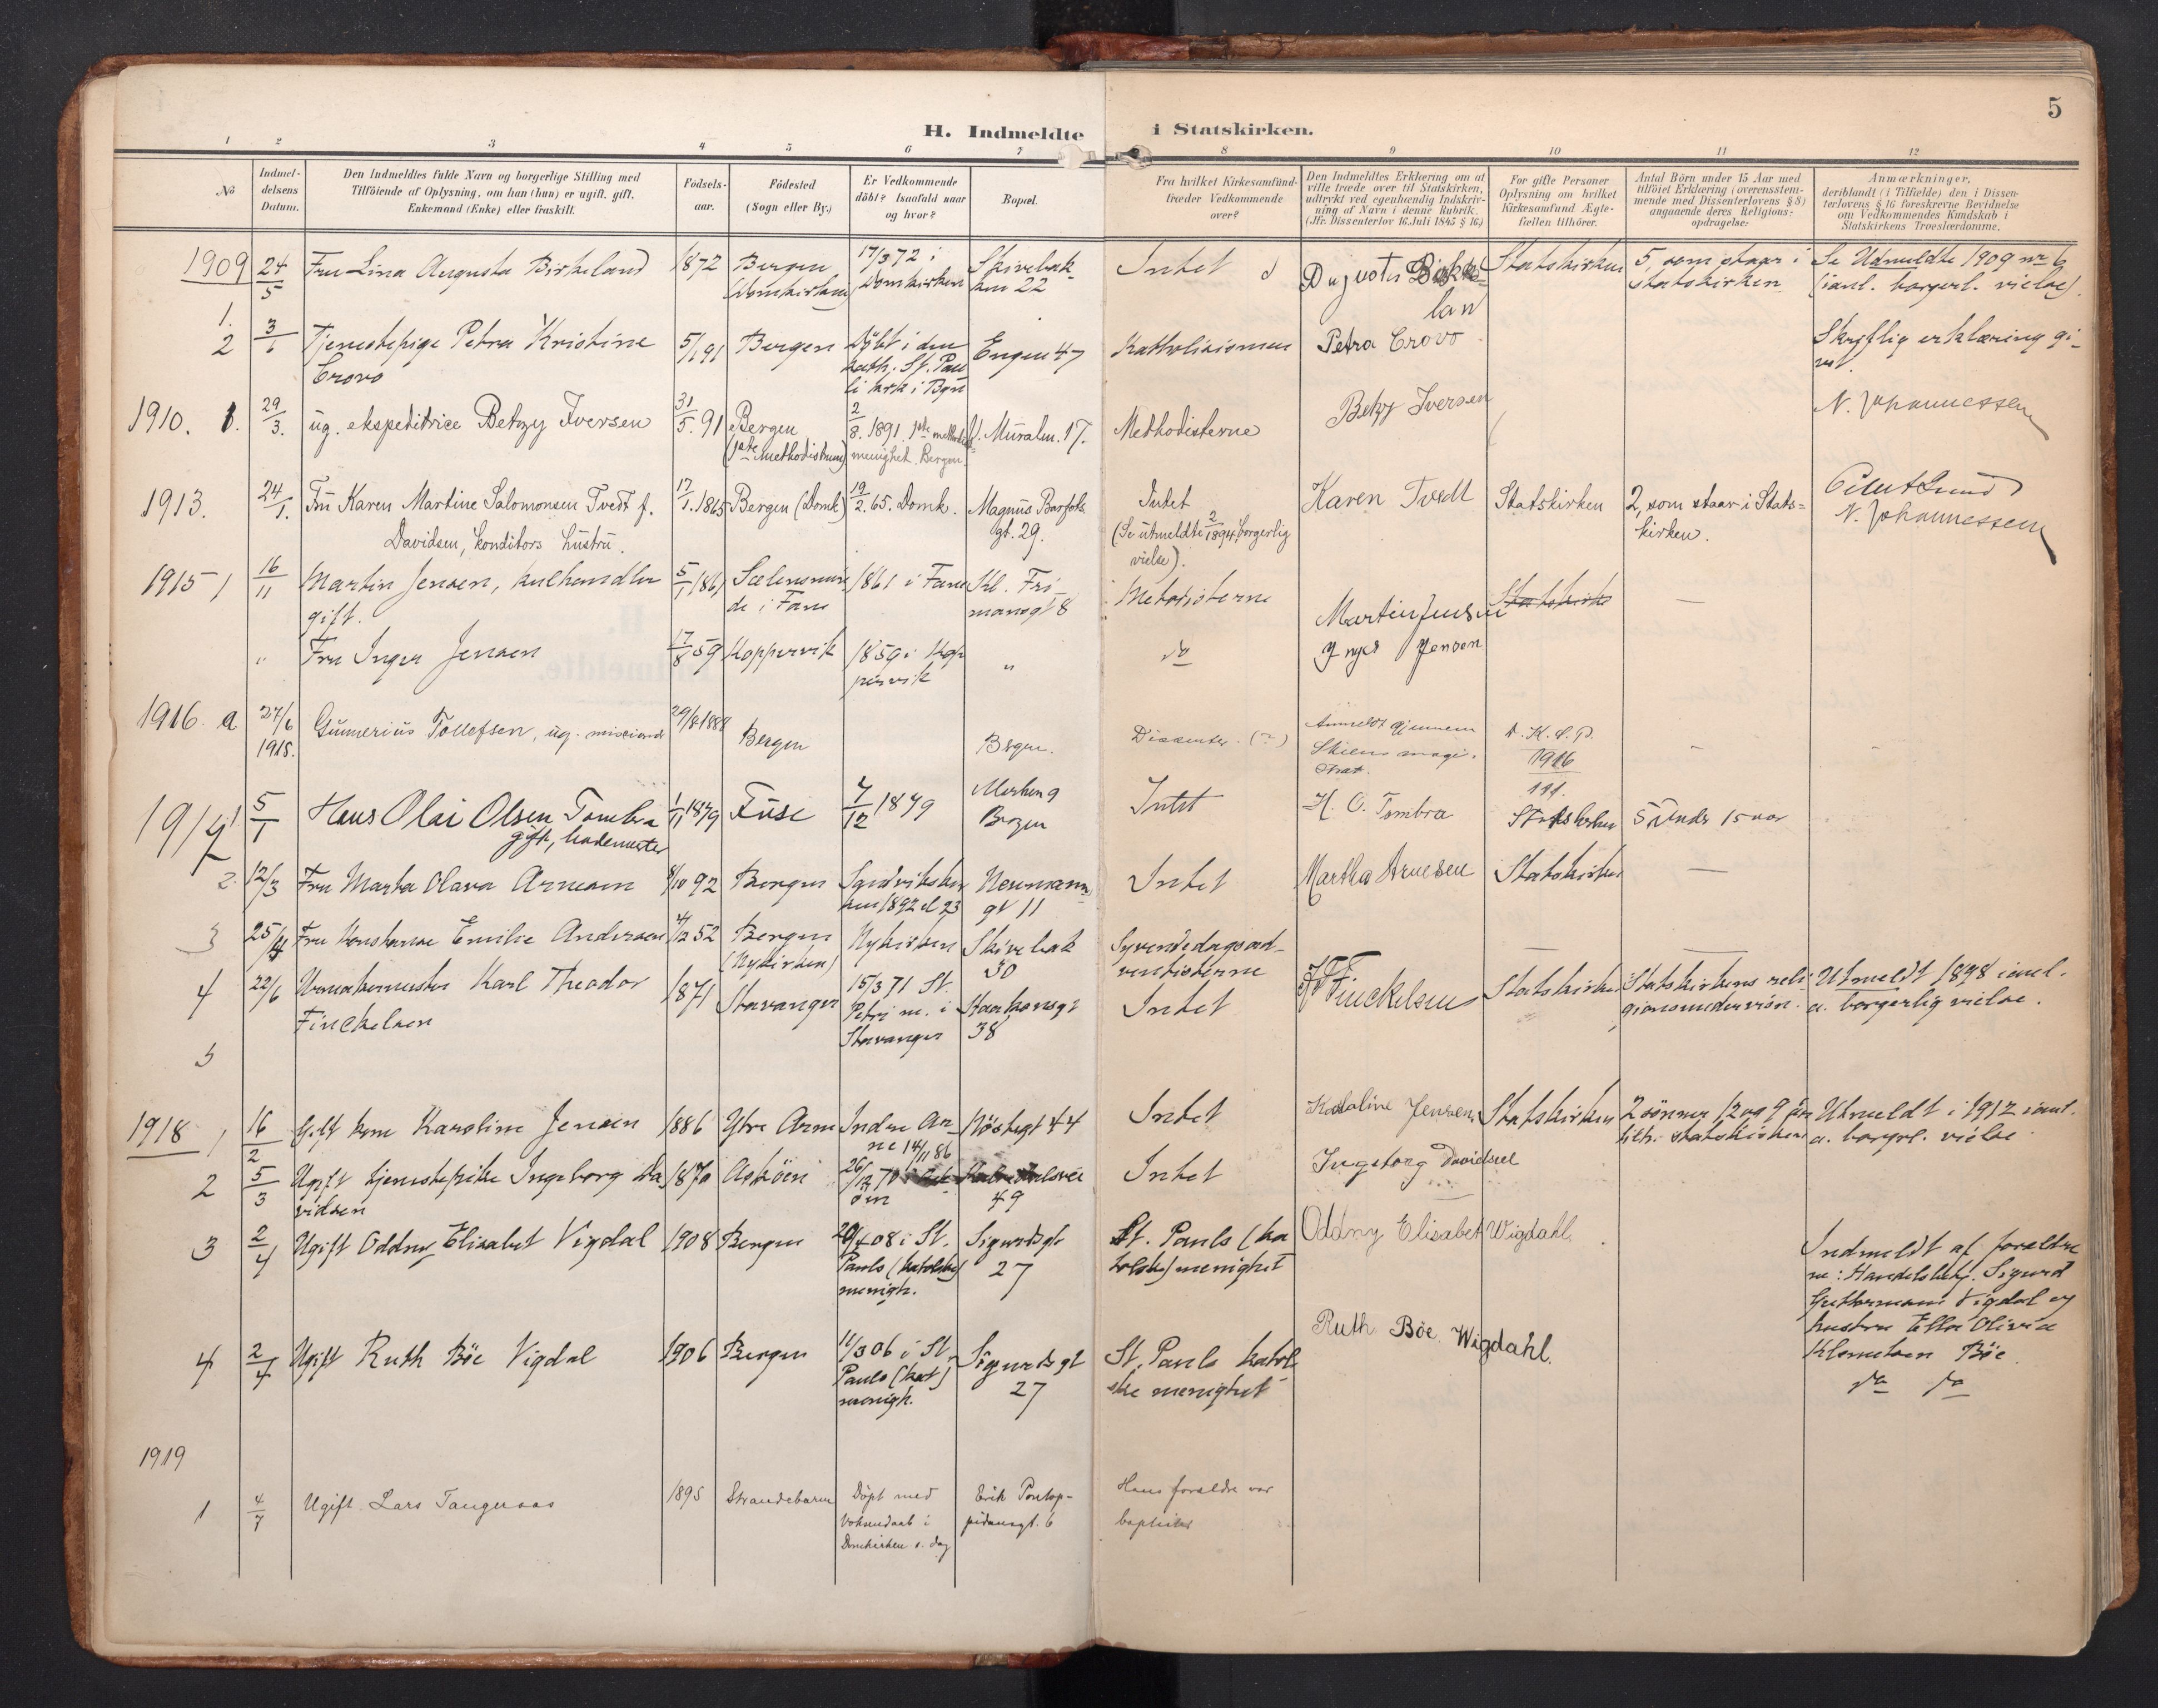 5
H. Indmeldte i Statskirken.
1 2 3 4 5 6 7 8 9 10 11 12
No
Indmel-
delsens
Datum.
Den Indmeldtes fulde Navn og borgerlige Stilling med
Tilföiende af Oplysning, om han (hun) er ugift, gift,
Enkemand (Enke) eller fraskilt.
Födsels-
aar.
Födested
(Sogn eller By.)
Er Vedkommende
döbt? Isaafald naar
og hvor?
Bopæl.
Fra hvilket Kirkesamfund
træder Vedkommende
over?
Den Indmeldtes Erklæring om at
ville træde over til Statskirken,
udtrykt ved egenhændig Indskriv-
ning af Navn i denne Rubrik.
(Jfr. Dissenterlov 16. Juli 1845 § 16.)
For gifte Personer
Oplysning om hvilket
Kirkesamfund Ægte-
fællen tilhörer.
Antal Börn under 15 Aar med
tilföiet Erklæring (overensstem-
mende med Dissenterlovens § 8)
angaaende deres Religions-
opdragelse:
Anmærkninger,
deriblandt (i Tilfælde) den i Dissen-
terlovens § 16 foreskrevne Bevidnelse
om Vedkommendes Kundskab i
Statskirkens Troeslærdomme.
1909 24/5 Fru Lina Augusta Birkeland 1872 Bergen 17/3 72 i Skivebak- Intet Augusta Birke- Statskirken 5, som staar i Se Udmeldte 1909 nr 6
1. (Domkirken) Domkirken ken 22 lan statskirken (ianl. borgerl. vielse).
2 3/6 Tjenestepige Petra Kristine 5/1 91 Bergen Döbt i den Engen 47 Katholicismen Petra Crovo Skriftlig erklæring gi-
Crovo kath. St. Pau vet.
li kirk i Bgn
1910. 1. 29/3. ug. ekspeditrice Betzy Iversen 31/5. 91 Bergen 2/8. 1891. 1ste methodist Muralm. 17. Methodisterne Betzy Iversen N. Johannessen
(1ste Methodistmen) menighet. Bergen.
1913. 24/1. Fru Karen Martine Salomonsen Tvedt f. 17/1. 1865 Bergen (Domk) 19/2. 65. Domk. Magnus Barfots Intet Karen Tvedt Statskirken 2, som staar i Stats-
Davidsen, konditors hustru. gt. 29. (Se utmeldte 2/1894, borgerlig kirken. N. Johannessen
vielse).
1915 1 16/11 Martin Jensen, kulhandler 5/1 1861 Sælensmin 1861 i Fane Kl. Fri- Metodisterne Martin Jensen Statskirke —
gift. de i Fane mansgt 8
" Fru Inger Jensen 17/8 59 Koppervik 1859 i Kop " do Inger Jensen
pervik
1916. a 27/6 Gunnerius Tollefsen, ug. missionær 29/8 1888 Bergen Bergen. Dissenter. (?) Anmeldt gjennem
1918. Skiens magi-
strat. 1916
1917 1 5/1 Hans Olai Olsen Tombra 1/11 1879 Fuse 7/12 1879 Marken 9 Intet H. O. Tombra Statskirken 5 under 15 aar
gift, bademester Bergen
2. 12/3 Fru Marta Olava Arnesen 8/10 92 Bergen Sandvikskir Neumanns Intet Martha Arnesen Statskirken —
ken 1892 el 93 gt 11
3 25/4 Fru Konstanse Emilie Andersen 4/12 52 Bergen Nykirken Skivebak Syvendedagsad- — —
(Nykirken) 30 ventisterne
4 22/6 Urmakermester Karl Theodor 1871 Stavanger 15/3 71 St. Haakonsgt Intet Finckelsen Statskirken Statskirkens reli- Utmeldt 1898 ianl.
Finckelsen Petri m. i 38 gionsundervisn. a. borgerlig vielse.
Stavanger
5
1918 1 16/2 Gift kone Karoline Jensen 1886 Ytre Arne Indre Ar- Nöstegt 44 Intet Karoline Jensen Statskirken 2 sönner 12 og 9 år Utmeldt i 1912 ianl.
ne 14/11 86 tilh. statskirken a. borgerl. vielse.
2 5/3 Ugift tjenestepike Ingeborg Da 1870 Asköen 26/12 70 Intet Ingeborg Davidsen
vidsen 49
3 2/4 Ugift Oddny Elisabet Vigdal 1908 Bergen 20/4 08 i St. Sigurdsgt St. Pauls (ka Oddny Elisabet Wigdahl.
Pauls (katolske) 27 tolske) menighet
menigh.
Indmeldt af forældre
ne: Handelsbetj. Sigurd
Guttormsen Vigdal og
hustru Ella Olivia
Klemetsen Böe.
4 2/4 Ugift Ruth Böe Vigdal 1906 Bergen 11/3 06 i St. Sigurdsgt St. Pauls katol Ruth Böe Wigdahl.
Pauls (kat) 27 ske menighet do do
menigh.
1919
1 4/7 Ugift Lars Tangeraas 1895 Strandebarm Döpt med Erik Pontop- Hans forældre var
Voksendaab i pidansgt. 6 baptister
Domkirken s. dag